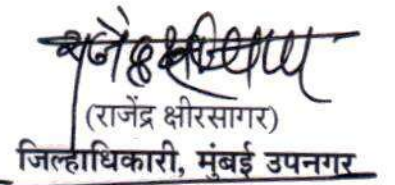 (राजेंद्र क्षीरसागर)
जिल्हाधिकारी, मुंबई उपनगर